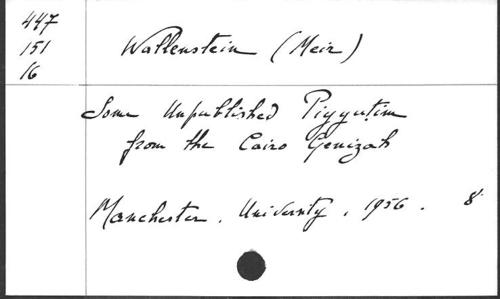 447
151
16
Wallenstein (Meir)
Some Unpublished Piyyuṭim
from the Cairo Genizah
Manchester, University, 1956. 8°